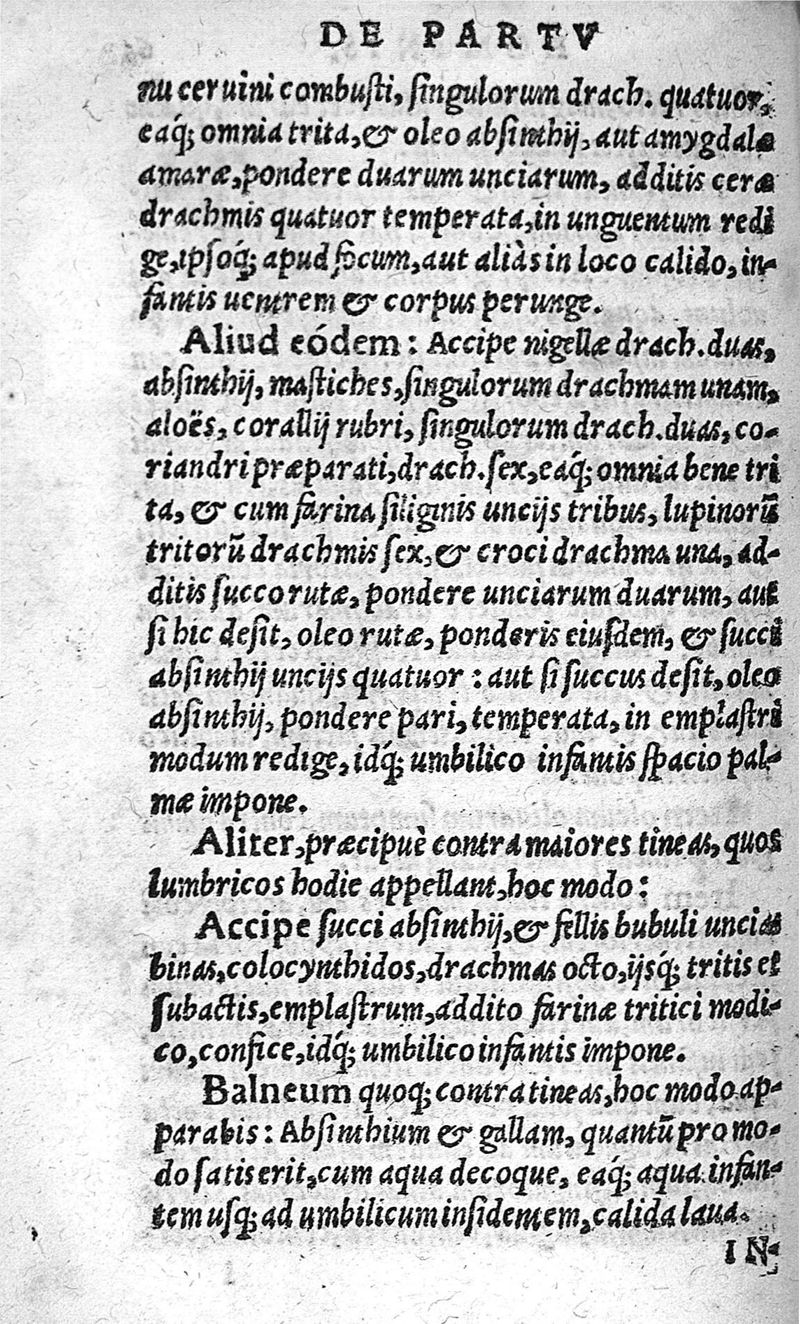 DE PARTV
nu ceruini combusti, singulorum drach. quatuor,
eaq́; omnia trita, & oleo absinthij, aut amygdalæ
amaræ, pondere duarum unciarum, additis ceræ
drachmis quatuor temperata, in unguentum redi
ge, ipsoq́; apud focum, aut aliàs in loco calido, in-
fantis uentrem & corpus perunge.
Aliud eódem: Accipe nigellæ drach. duas,
absinthij, mastiches, singulorum drachmam unam,
aloës, corallij rubri, singulorum drach. duas, co-
riandri præparati, drach. sex, eaq́; omnia bene tri
ta, & cum farina siliginis uncijs tribus, lupinorū
tritorū drachmis sex, & croci drachma una, ad-
ditis succo rutæ, pondere unciarum duarum, aut
si hic desit, oleo rutæ, ponderis eiusdem, & succi
absinthij uncijs quatuor: aut si succus desit, oleo
absinthij, pondere pari, temperata, in emplastri
modum redige, idq́; umbilico infantis spacio pal-
mæ impone.
Aliter, præcipuè contra maiores tineas, quos
lumbricos hodie appellant, hoc modo:
Accipe succi absinthij, & fellis bubuli uncias
binas, colocynthidos, drachmas octo, ijsq́; tritis et
subactis, emplastrum, addito farinæ tritici modi-
co, confice, idq́; umbilico infantis impone.
Balneum quoq; contra tineas, hoc modo ap-
parabis: Absinthium & gallam, quantū pro mo-
do satis erit, cum aqua decoque, eaq́; aqua infan-
tem usq; ad umbilicum insidentem, calida laua.
IN-